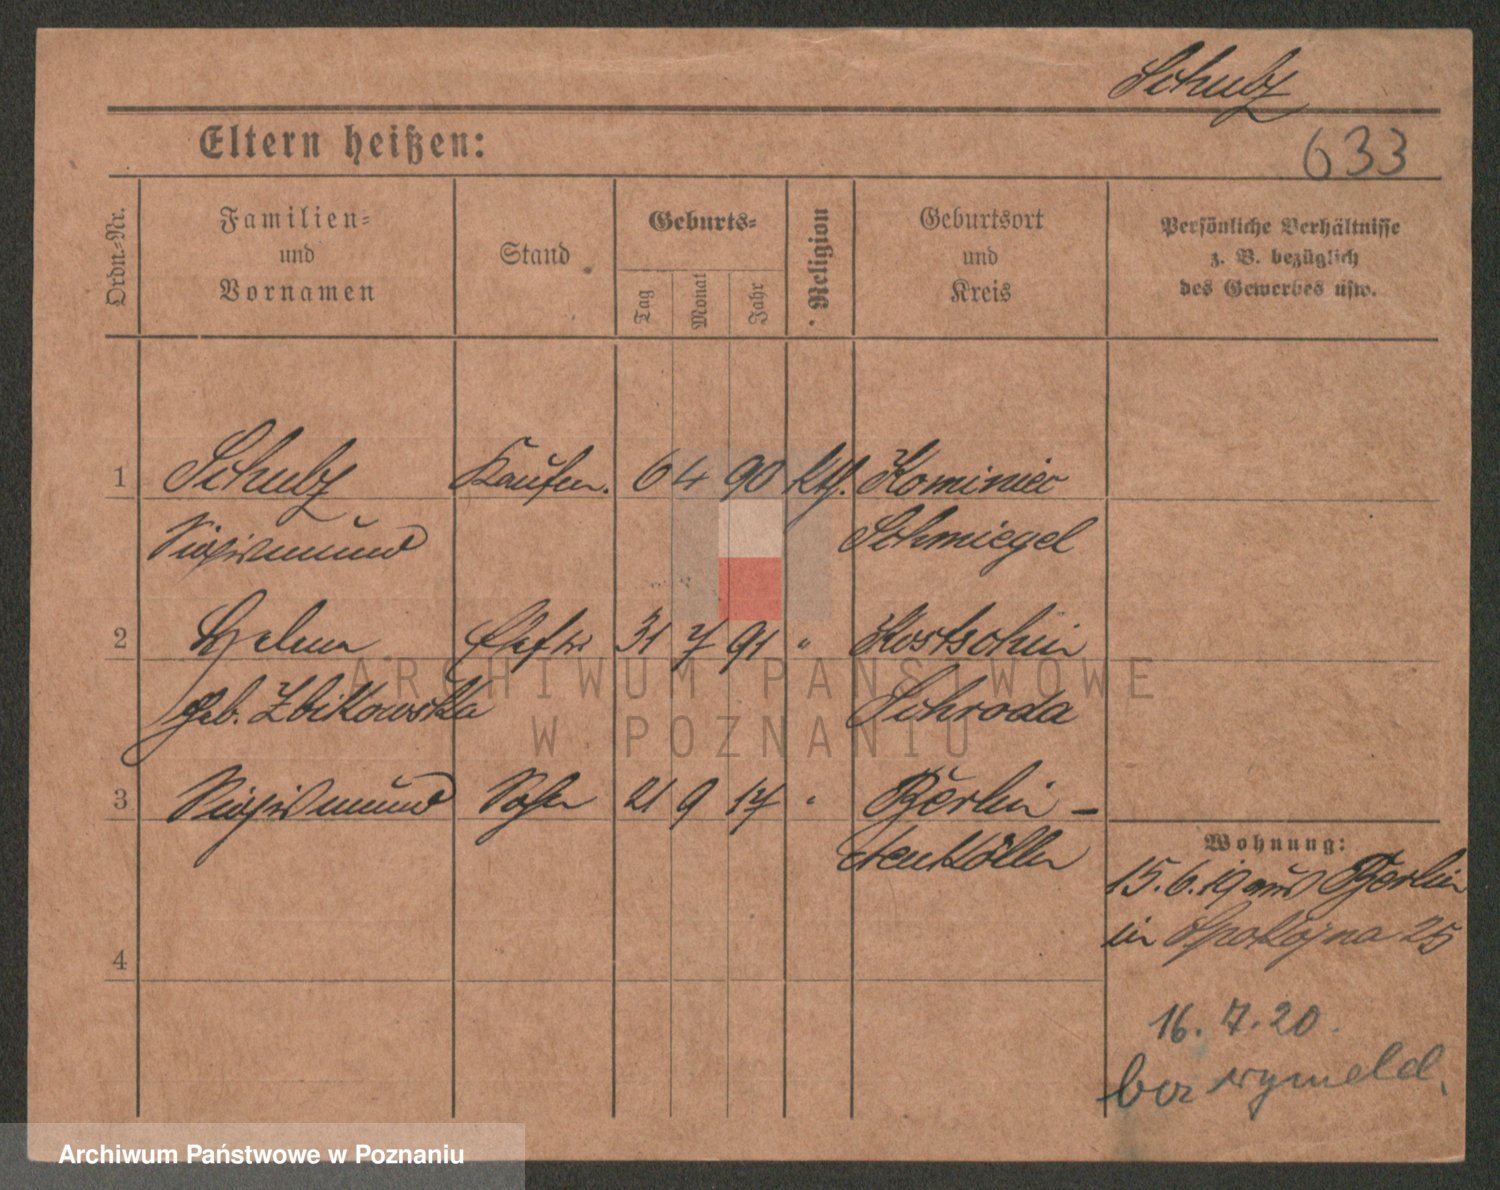 Schulz
Eltern heißen:
633
Ordn.-Nr.
Familien-
und
Vornamen
Stand
Geburts-
Tag
Monat
Jahr
Religion
Geburtsort
und
Kreis
Persönliche Verhältnisse
z. B. bezüglich
des Gewerbes usw.
1 Schulz Kaufm. 6 4 90 kth. Kominiec
Sigismund Schmiegel
2 Helena Ehefr. 31 7 91 " Kostschin
geb. Zbikowska Schroda
3 Sigismund Sohn 21 9 17 " Berlin -
Neukölln
Wohnung:
15.6.19 aus Berlin
in Spokojna 25
4
16. 7. 20.
bez wymeld.
ARCHIWUM PAŃSTWOWE
W POZNANIU
Archiwum Państwowe w Poznaniu